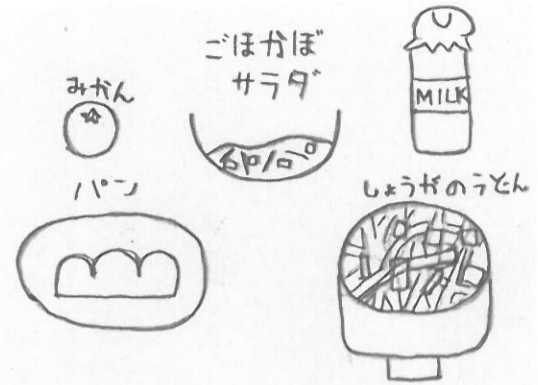 みかん
ごほかぼ
サラダ
MILK
パン
しょうがのうどん